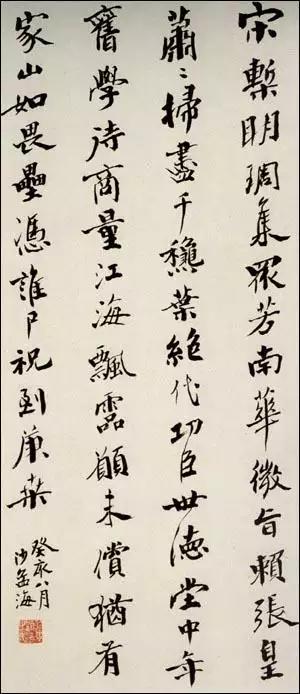 宋槧明琱集眾芳南華微旨賴張皇
蕭〻掃盡千穐葉絕代功臣世德堂中年
舊學待商量江海飄霝願未償猶有
家山如畏壘憑誰尸祝到庚桑
癸亥八月
沙孟海